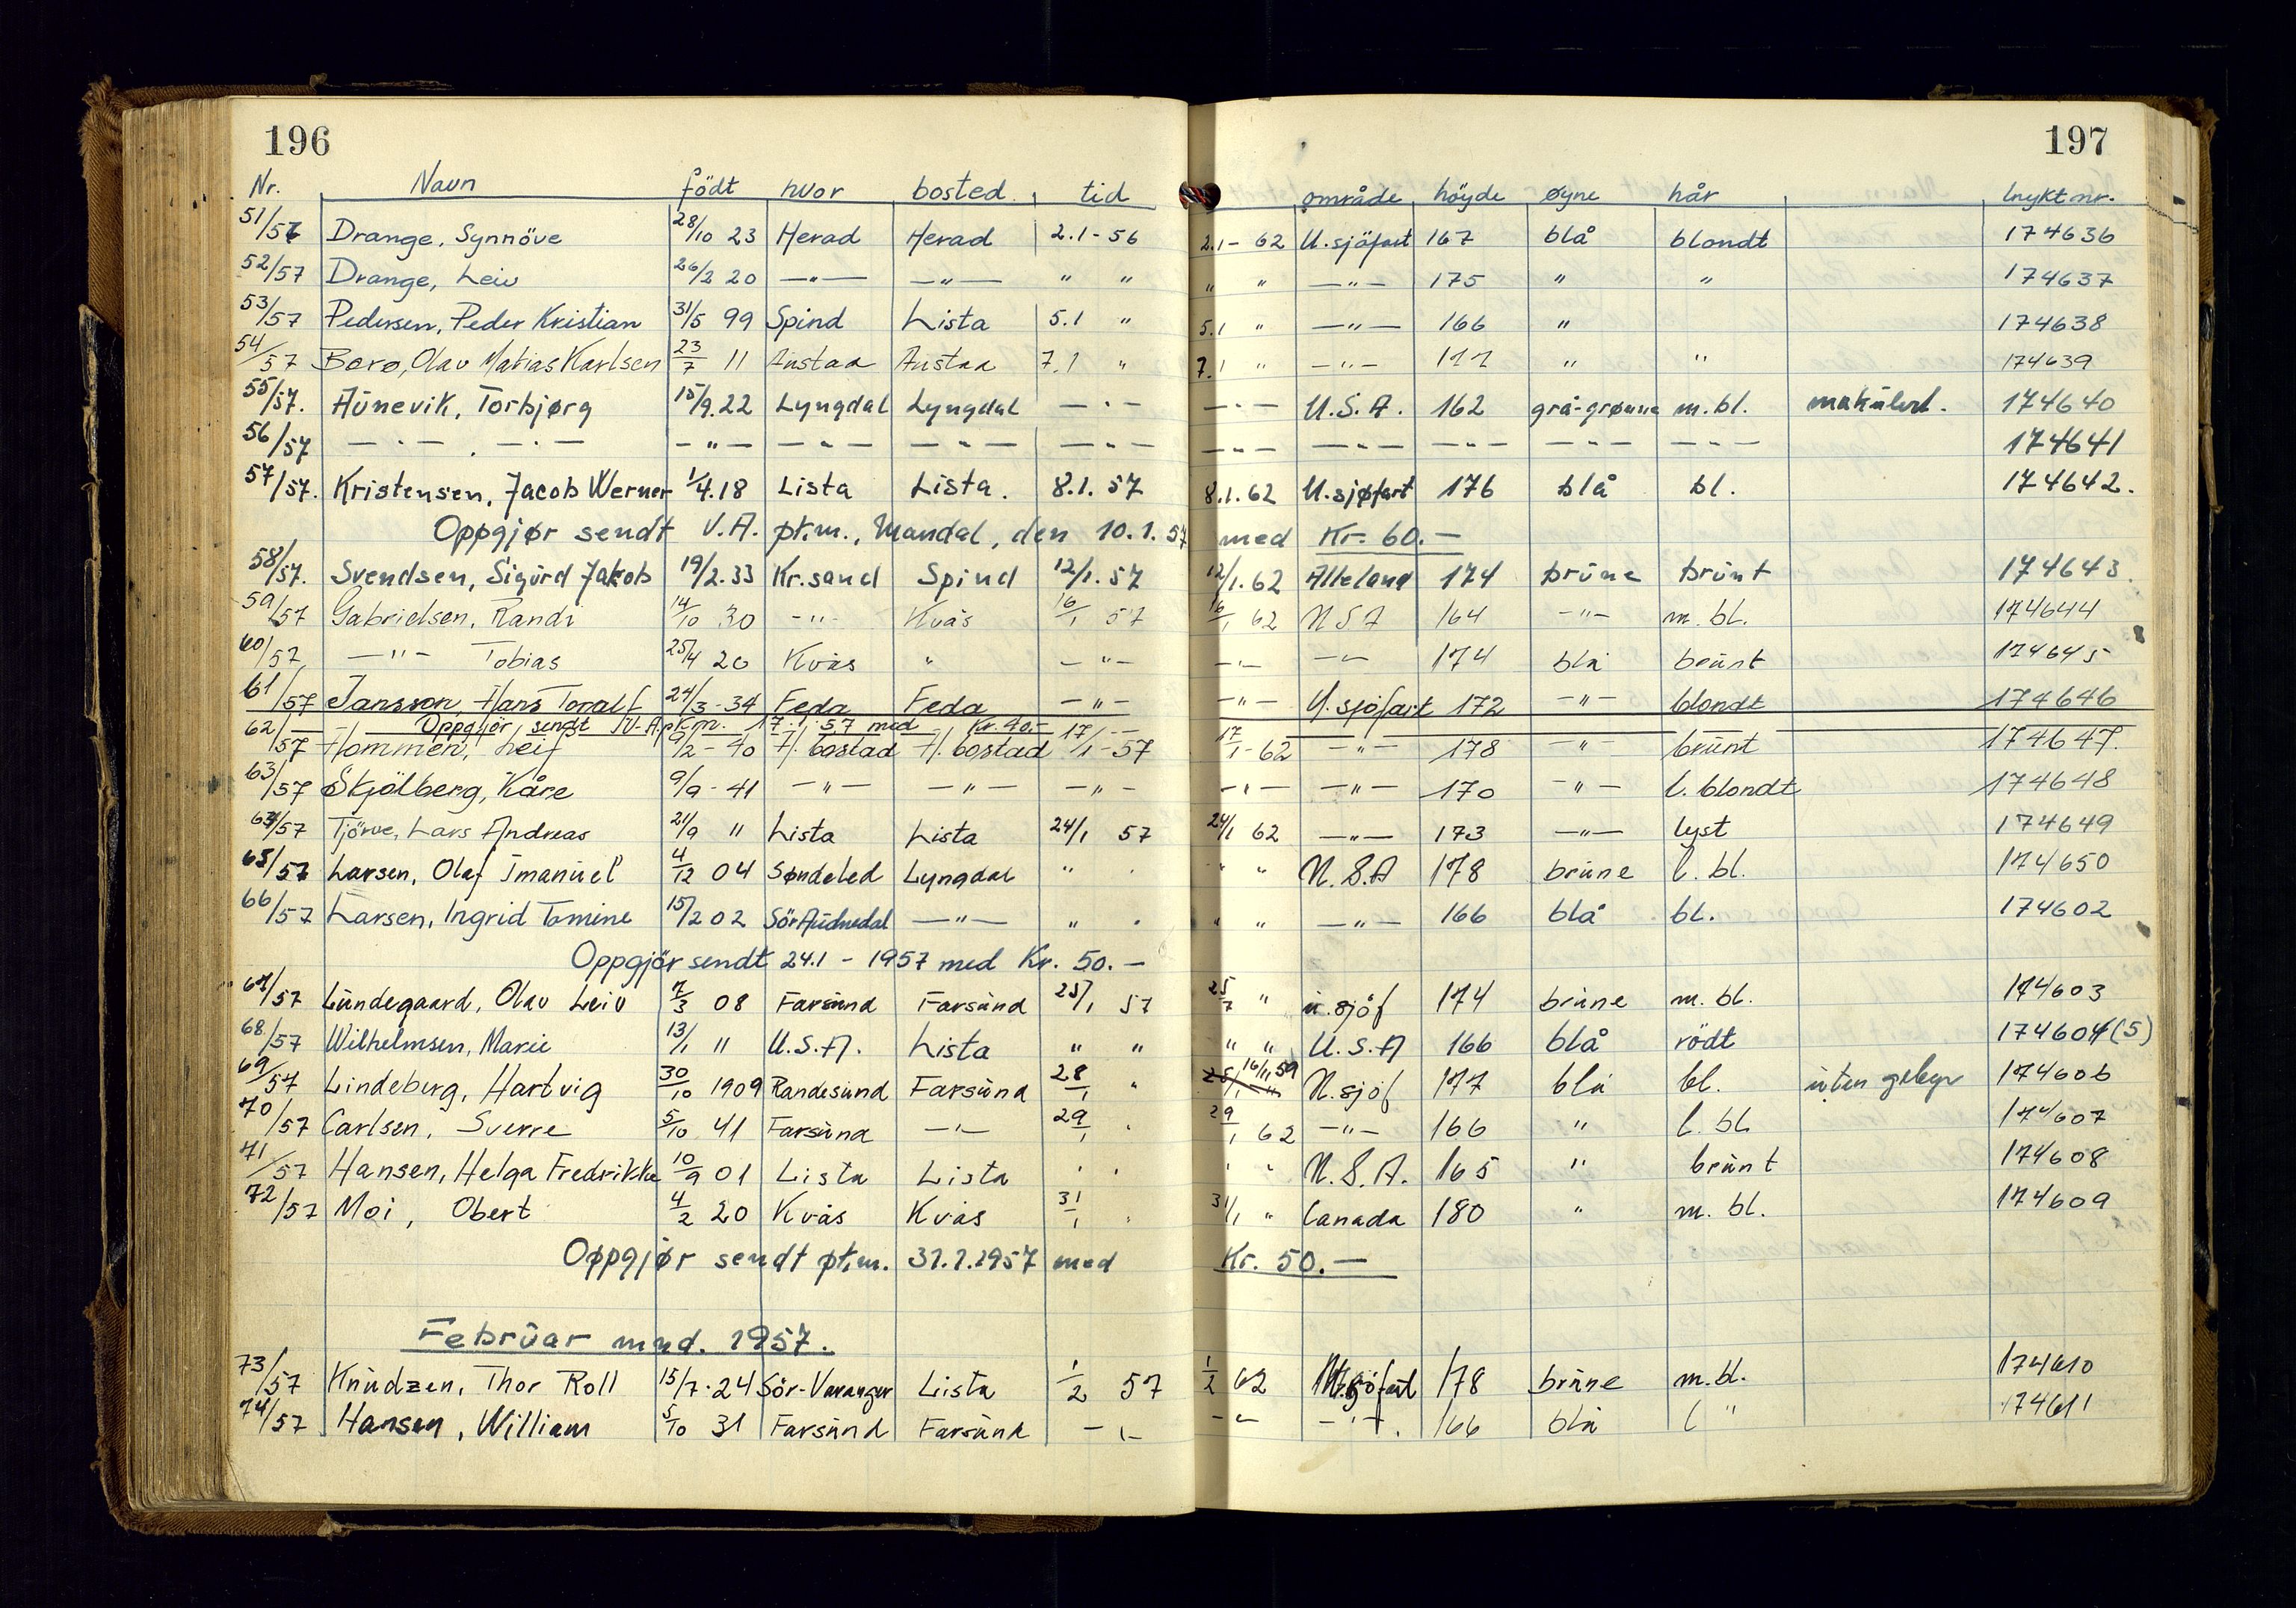 196
197
Nr. Navn födt hvor bosted tid område höyde øyne hår trykt nr.
51/57 Drange, Synnöve 28/10 23 Herad Herad 2.1-56 2.1-62 U.sjöfart 167 blå blondt 174636
52/57 Drange, Leiv 26/2 20 —"— —"— " " " " —"— 175 " " 174637
53/57 Pedersen, Peder Kristian 31/5 99 Spind Lista 5.1 " 5.1 " —"— 166 " 174638
54/57 Borø, Olav Matias Karlsen 23/7 11 Austad Austad 7.1 " 7.1 " —"— 177 " " 174639
55/57. Aunevik, Torbjørg 15/9.22 Lyngdal Lyngdal —"— —"— U.S.A. 162 grå-grønne m.bl. makulert. 174640
56/57 —"— —"— —"— —"— —"— —"— —"— —"— —"— —"— —"— 174641
57/57. Kristensen, Jacob Werner 1/4.18 Lista Lista. 8.1.57 8.1.62 U.sjøfart 176 blå bl. 174642.
Oppgjør sendt V.A. pk.m., Mandal, den 10.1.57 med Kr. 60.—
58/57. Svendsen, Sigurd Jakob 19/2.33 Kr.sand Spind 12/1.57 12/1.62 Alle land 174 brune brunt 174643.
59/57 Gabrielsen, Randi 14/10 30 —"— Kvås 16/1 57 16/1 62 U S A 164 —"— m. bl. 174644
60/57 —"— Tobias 25/4 20 Kvås " —"— —"— —"— 174 blå brunt 174645
61/57 Jansson, Hans Toralf 24/3-34 Feda Feda —"— —"— U.sjöfart 172 —"— blondt 174646
Oppgjör sendt V.A.pk.m. 17.1.57 med Kr. 40.—
62/57 Hommen, Leif 9/2-40 H. bostad H. bostad 17/1-57 17/1-62 —"— 178 —"— brunt 174647.
63/57 Skjölberg, Kåre 9/9-41 —"— —"— —"— —"— —"— 170 —"— l. blondt 174648
64/57 Tjörve, Lars Andreas 21/9 11 Lista Lista 24/1 57 24/1 62 —"— 173 —"— lyst 174649
65/57 Larsen, Olaf Imanuel 4/12 04 Søndeled Lyngdal " " " " U.S.A 178 brune l. bl. 174650
66/57 Larsen, Ingrid Tomine 15/2 02 Sör Audnedal —"— " " " " —"— 166 blå bl. 174602
Oppgjör sendt 24.1 - 1957 med Kr. 50.—
67/57 Lundegaard, Olav Leiv 7/3 08 Farsund Farsund 25/1 57 25/1 " u.sjöf 174 brune m. bl. 174603
68/57 Wilhelmsen, Marie 13/1 11 U.S.A. Lista " " " " U.S.A 166 blå rödt 174604(5)
69/57 Lindeberg, Hartvig 30/10 1909 Randesund Farsund 28/1 " 16/11 59 U.sjöf 177 blå bl. uten gebyr 174606
70/57 Carlsen, Sverre 5/10 41 Farsund —"— 29/1 " 29/1 62 —"— 166 " l. bl 174607
71/57 Hansen, Helga Fredrikke 10/9 01 Lista Lista " " " " U.S.A. 165 " brunt 174608
72/57 Moi, Obert 4/2 20 Kvås Kvås 31/1 " 31/1 " Canada 180 " m. bl. 174609
Oppgjør sendt pk.m. 31.1.1957 med Kr. 50.—
Februar mnd. 1957.
73/57 Knudzen, Thor Roll 15/7-24 Sör-Varanger Lista 1/2 57 1/2 62 U.sjöfart 178 brune m.bl. 174610
74/57 Hansen, William 5/10 31 Farsund Farsund —"— —"— —"— 166 blå l " 174611